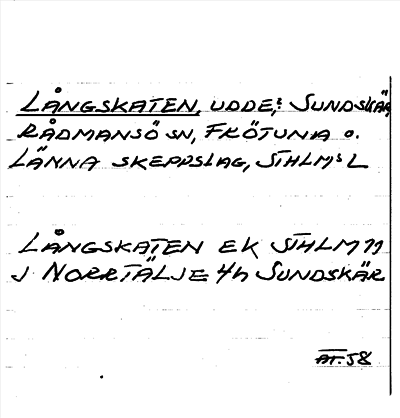 LÅNGSKATEN, UDDE, å SUNDSKÄR,
RÅDMANSÖ SN, FRÖTUNA O.
LÄNNA SKEPPSLAG, STHLMS L
LÅNGSKATEN EK STHLM 79
J NORRTÄLJE 4h SUNDSKÄR
58